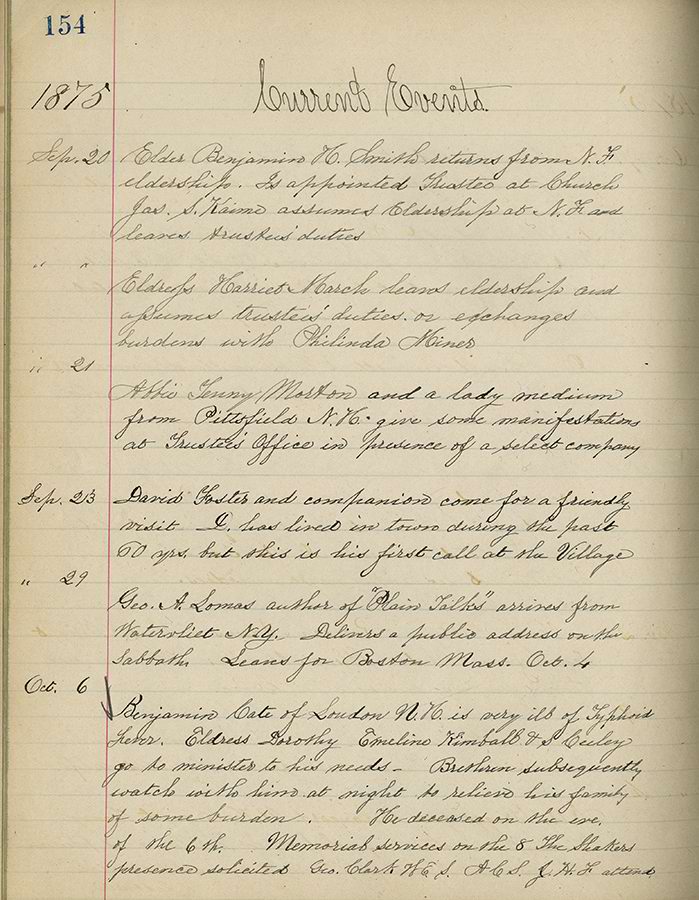 154
1875 Current Events.
Sep. 20 Elder Benjamin H. Smith returns from N. F.
eldership. Is appointed Trustee at Church
Jas. S. Kaime assumes Eldership at N. F. and
leaves trustees' duties
" "
Eldress Harriet March leaves eldership and
assumes trustees' duties. or exchanges
burdens with Philinda Miner
" 21
Abbie Tenny Morton and a lady medium
from Pittsfield N. H. give some manifestations
at Trustee's Office in presence of a select company
Sep. 23 David Foster and companion come for a friendly
visit D. has lived in town during the past
60 yrs. but this is his first call at the Village
" 29
Geo. A. Lomas author of "Plain Talks" arrives from
Watervliet N.Y. Delivers a public address on the
Sabbath. Leaves for Boston Mass. Oct. 4
Oct. 6
Benjamin Cate of Loudon N. H. is very ill of Typhoid
Fever. Eldress Dorothy Emeline Kimball & S
go to minister to his needs - Brethren subsequently
watch with him at night to relieve his family
of some burden. He deceased on the eve.
of the 6th. Memorial services on the 8 The Shakers
presence solicited Geo. Clark W E S. A C S. J. H. F attend